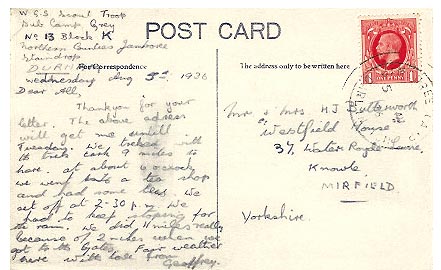 W.G.S Scout Troop
Sub Camp Grey
No 13 Block K
Northern Counties Jamboree
Staindrop
DURHAM
POST CARD
For Correspondence
The address only to be written here
Wednesday Aug 5th 1936
Dear All,
Thankyou for your
letter. The above adress
will get me untill
Tuesday. We treked with
the cart 9 miles to
here. at about 6 oclock
we went into a tea shop
and had some tea. We
set off at 2-30 p.m. We
had to keep stoping for
the rain. We did 11 miles really
because of 2 miles when we
got to the gates. Fair weather
here with love from
Geoffrey.
Mr & Mrs H.J Butterworth
Westfield House
37, Water Royd Lane,
Knowle
MIRFIELD.
Yorkshire.